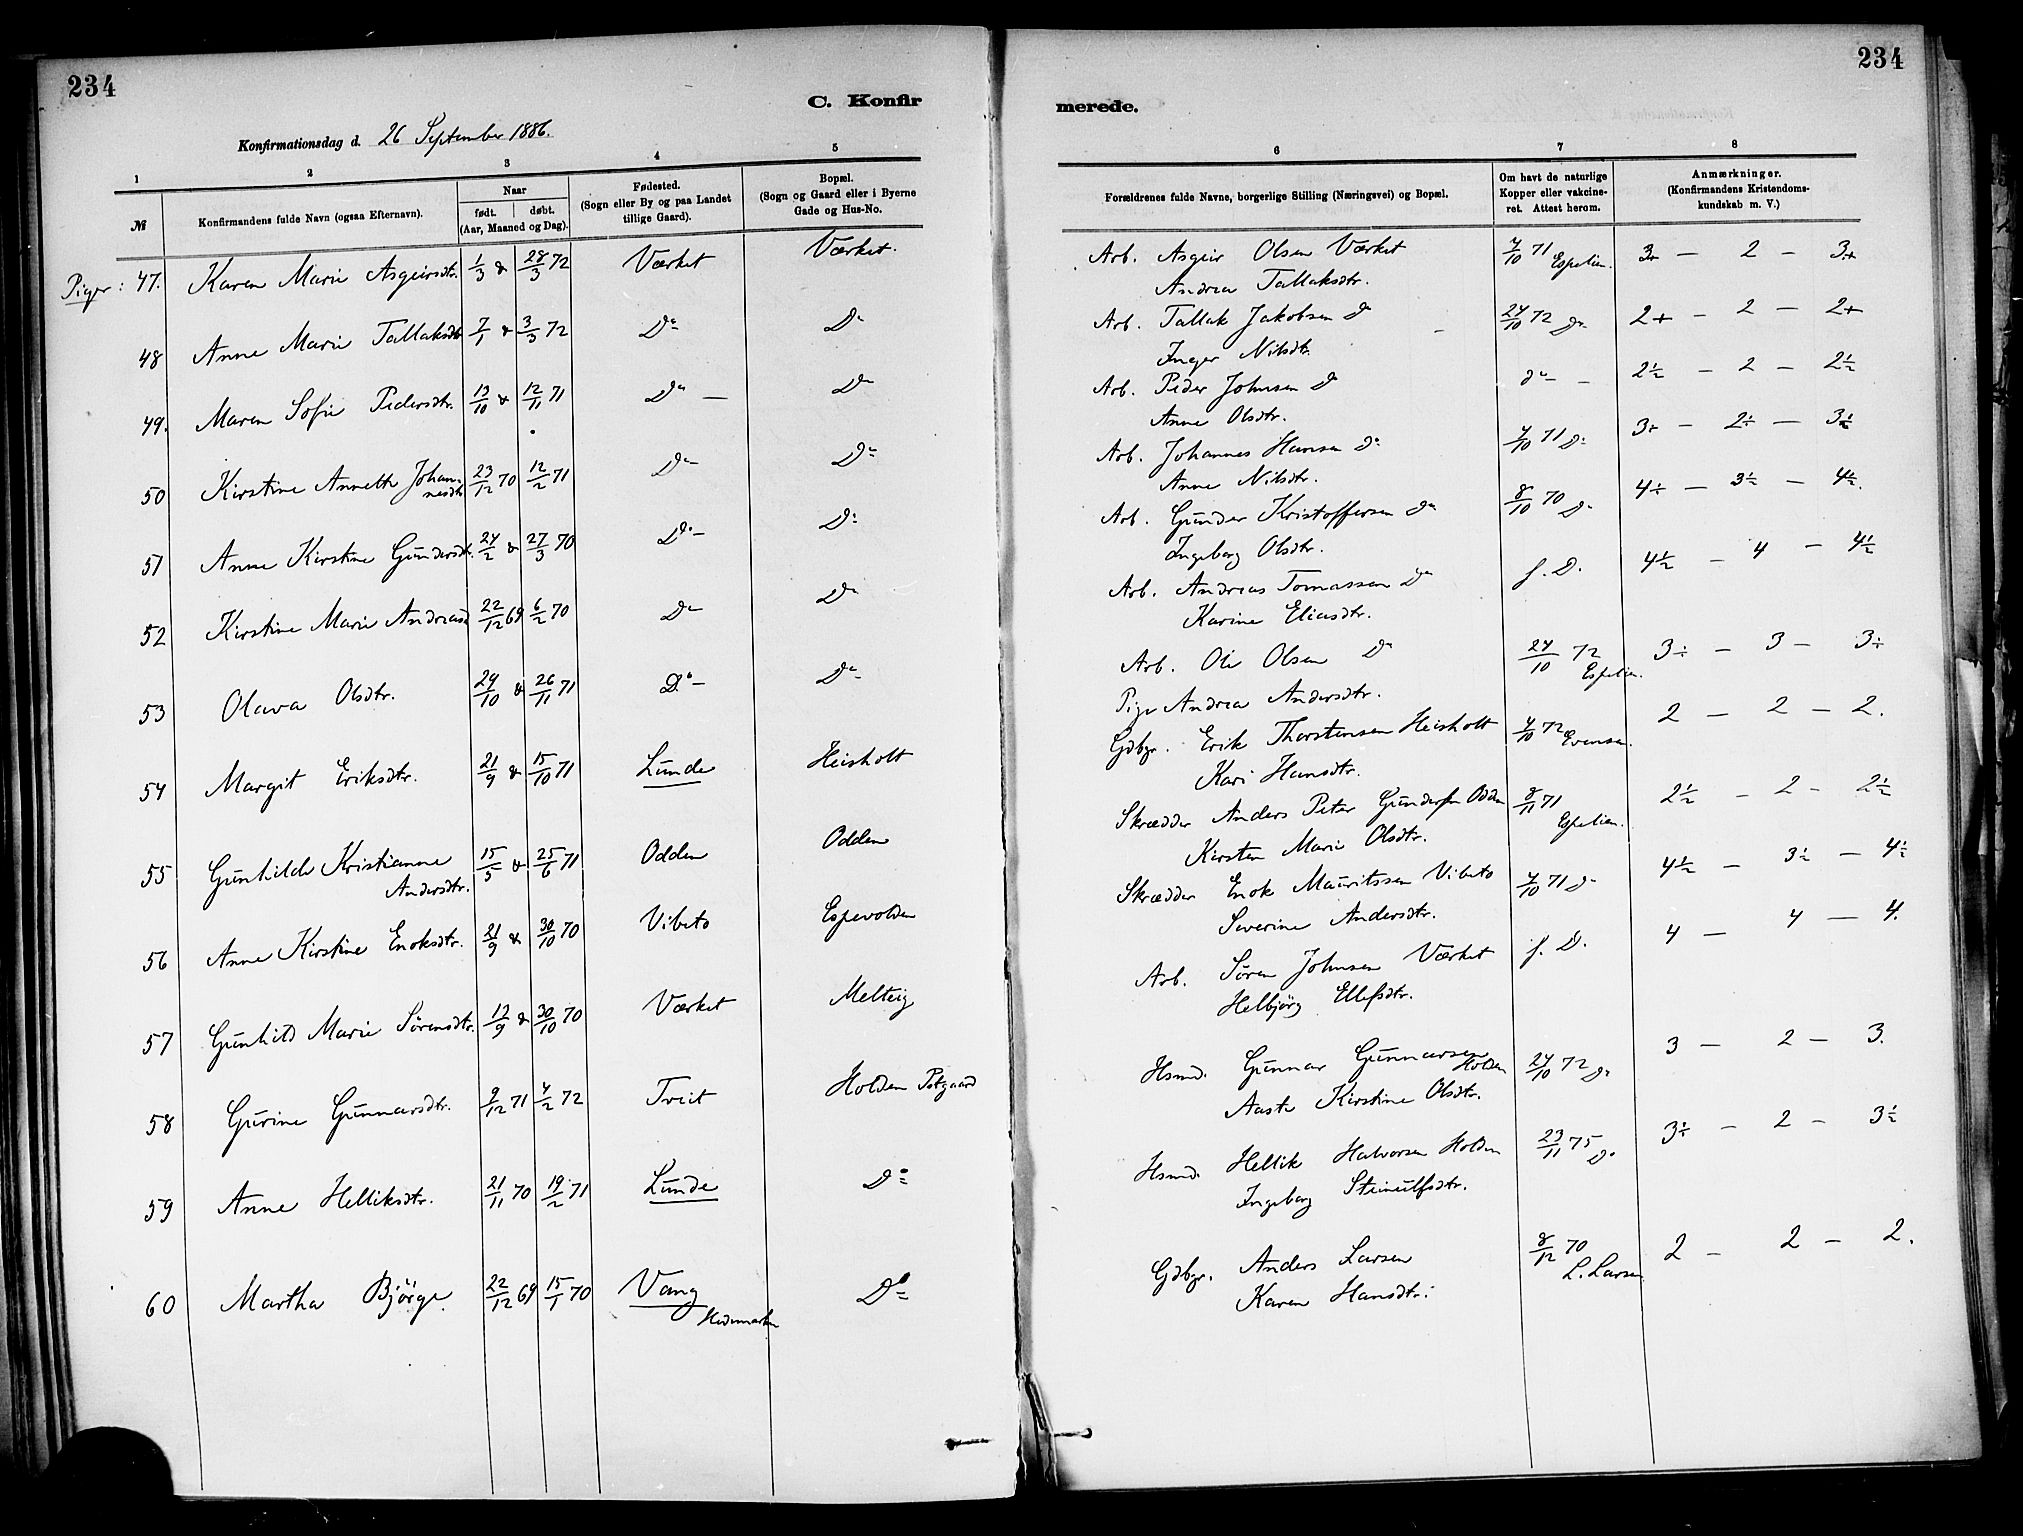 234
C. Konfir
Konfirmationsdag d. 26 September 1886.
1 2 3 4 5
№
Konfirmandens fulde Navn (ogsaa Efternavn).
Naar
født. døbt.
(Aar, Maaned og Dag).
Fødested.
(Sogn eller By og paa Landet
tillige Gaard).
Bopæl.
(Sogn og Gaard eller i Byerne
Gade og Hus-No.
Piger: 47. Karen Marie Asgeirsdtr. 1/3 & 28/3 72 Værket Værket.
48 Anne Marie Tallaksdtr 7/1 & 3/3 72 Do Do
49. Maren Sofie Pedersdtr. 13/10 & 12/11 71 Do — Do
50 Kirstine Anneth Johan-
nesdtr 23/12 70 12/2 71 Do Do
51 Anne Kirstine Gundersdtr. 24/2 & 27/3 70 Do — Do
52 Kirstine Marie Andreasd 22/12 69 6/2 70 Do Do
53 Olava Olsdtr. 29/10 & 26/11 71 Do — Do
54 Margit Eriksdtr. 21/9 & 15/10 71 Lunde Heisholt
55 Gunhilde Kristianne
Andersdtr. 15/5 & 25/6 71 Odden Odden
56 Anne Kirstine Enoksdtr. 21/9 & 30/10 70 Vibeto Espevolden
57 Gunhild Marie Sørensdtr. 12/9 & 30/10 70 Værket Melteig
58 Gurine Gunnarsdtr. 9/12 71 4/2 72 Tveit Holden Pstgaard
59 Anne Helliksdtr. 21/11 70 19/2 71 Lunde Do
60 Martha Bjørge 22/12 69 15/1 70 Vang Do
Hedemarken
234
merede.
6 7 8
Forældrenes fulde Navne, borgerlige Stilling (Næringsvei) og Bopæl.
Om havt de naturlige
Kopper eller vakcine-
ret. Attest herom.
Anmærkninger.
(Konfirmandens Kristendoms-
kundskab m. V.)
Arb. Asgeir Olsen Værket 4/10 71 Espelien. 3+ — 2 — 3+
Andrea Tallaksdtr.
Arb. Tallak Jakobsen do 24/10 72 do 2+ — 2 — 2+
Inger Nilsdtr.
Arb. Peder Johnsen do do — 2½ — 2 — 2½
Anne Olsdtr.
Arb. Johannes Hansen Do 4/10 71 Do 3÷ — 2÷ — 3½
Anne Nilsdtr.
Arb. Gunder Kristoffersen do 8/10 70 Do 4÷ — 3½ — 4½.
Ingeborg Olsdtr.
Arb. Andreas Tomassen do f. D. 4½ — 4 — 4½
Karine Eliasdtr.
Arb. Ole Olsen Do 24/10 72 Espelien. 3÷ — 3 — 3÷
Pige Andrea Andersdtr.
Gdbgr. Erik Thorstensen Heisholt 4/10 72 Evensen. 2 — 2 — 2.
Kari Hansdtr.
Skrædder Anders Peter Gundersen Odden 8/11 71 Espelien. 2½ — 2 — 2½
Kirsten Marie Olsdtr.
Skrædder Enok Mauritssen Vibeto 4/10 71 do 4½ — 3½ — 4½
Severine Andersdtr.
Arb. Søren Johnsen Værket f. D. 4 — 4 — 4.
Helbjørg Ellefsdtr.
Hsmd. Gunnar Gunnarsen
Holden 24/10 72 Do 3 — 2 — 3.
Aaste Kirstine Olsdtr.
Hsmd. Hellik Halvorsen Holden 23/11 75 Do 3÷ — 2 — 3½
Ingeborg Steinulfsdtr.
Gdbgr. Anders Larsen 8/12 70 L. Larsen 2 — 2 — 2.
Karen Hansdtr.